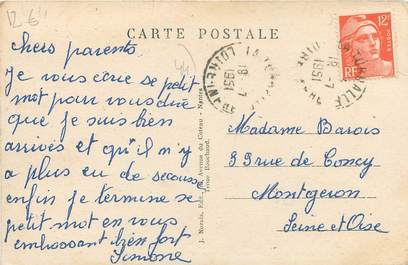 12 €
CARTE POSTALE
44
chers parents
Je vous écrie se petit
mot pour vous dire
que je suis bien
arrivés et qu'il n'y
a plus eu de secousse
enfin je termine se
petit mot en vous
embrassant bien fort
Simone
J. Nozais, Edit., Avenue du Coteau - Nantes
18-7
1951
18-7
1951
12F
POSTES
RF
Madame Barois
39 rue de Concy
Montgeron
Seine et Oise